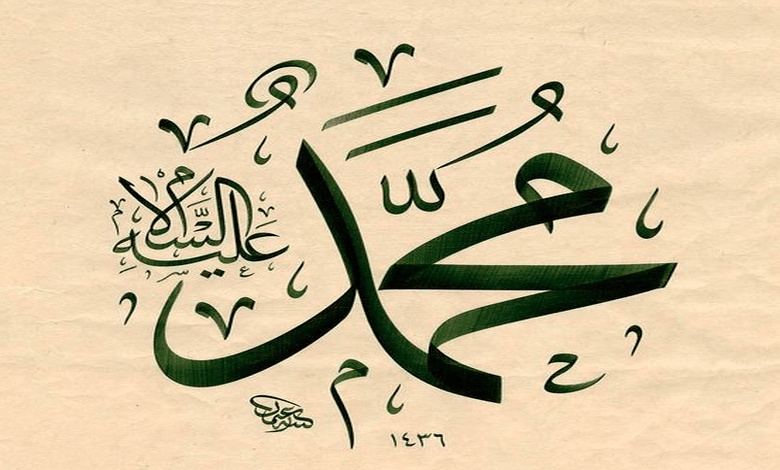 محمد
عليه السلام
١٤٣٦